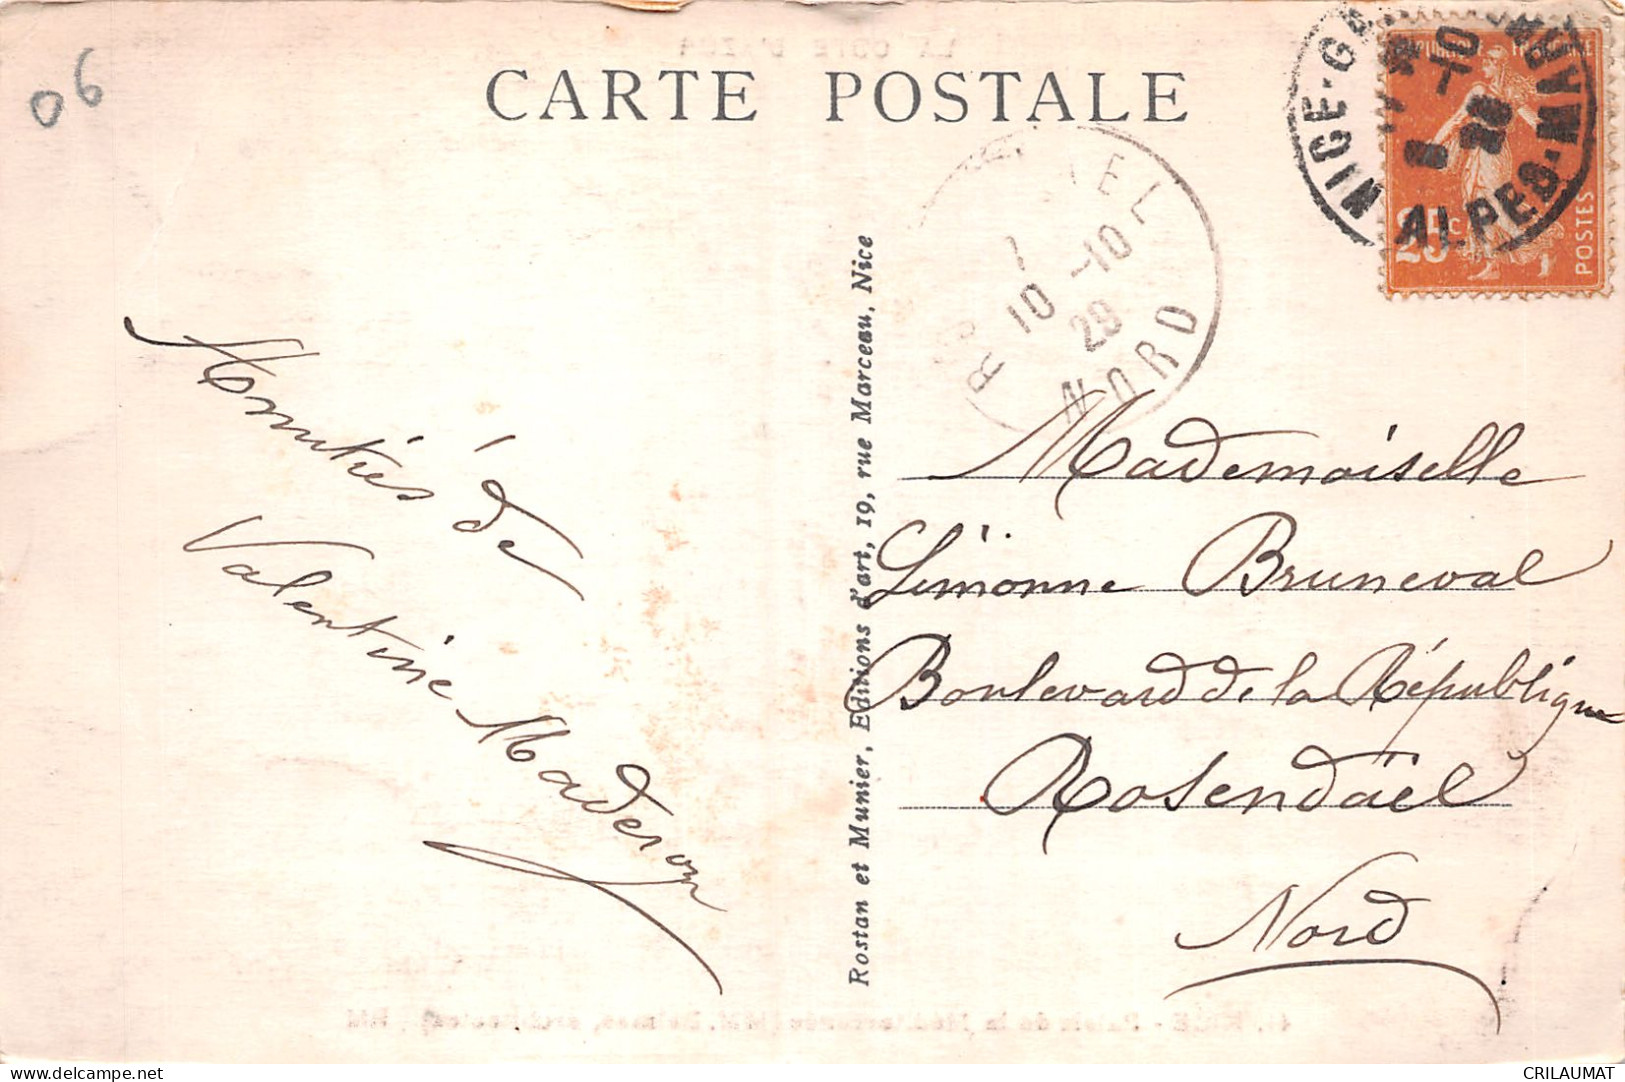 06
CARTE POSTALE
NICE-GA
ALPES-MAR
25c
POSTES
10-10
28
NORD
Rostan et Munier, Editions d'art, 19, rue Marceau, Nice
Amitiés de
Valentine Maderon
Mademoiselle
Simonne Bruneval
Boulevard de la République
Rosendaël
Nord
CRILAUMAT